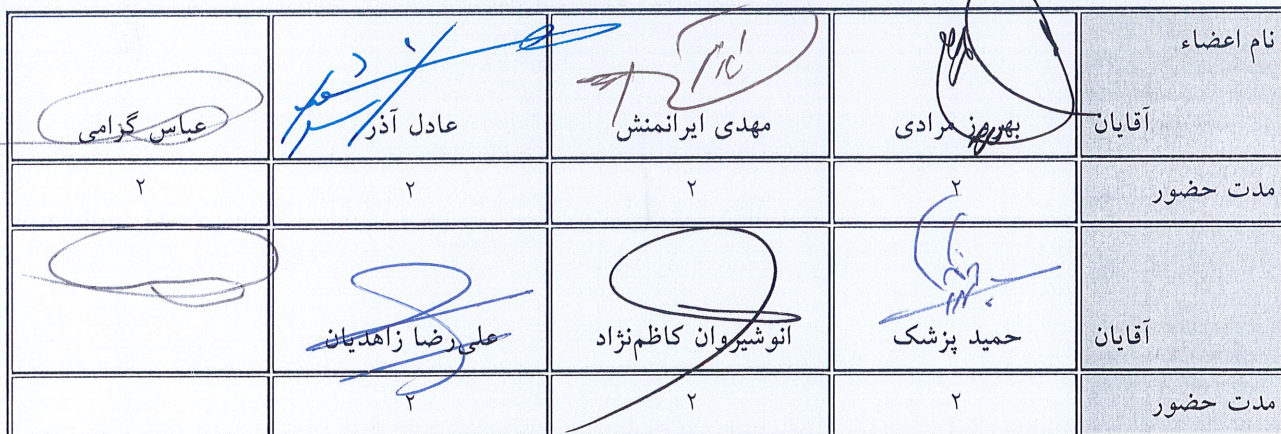 نام اعضاء
آقایان بهروز مرادی مهدی ایرانمنش عادل آذر عباس گرامی
مدت حضور ۲ ۲ ۲ ۲
آقایان حمید پزشک انوشیروان کاظم‌نژاد علی‌رضا زاهدیان
مدت حضور ۲ ۲ ۲